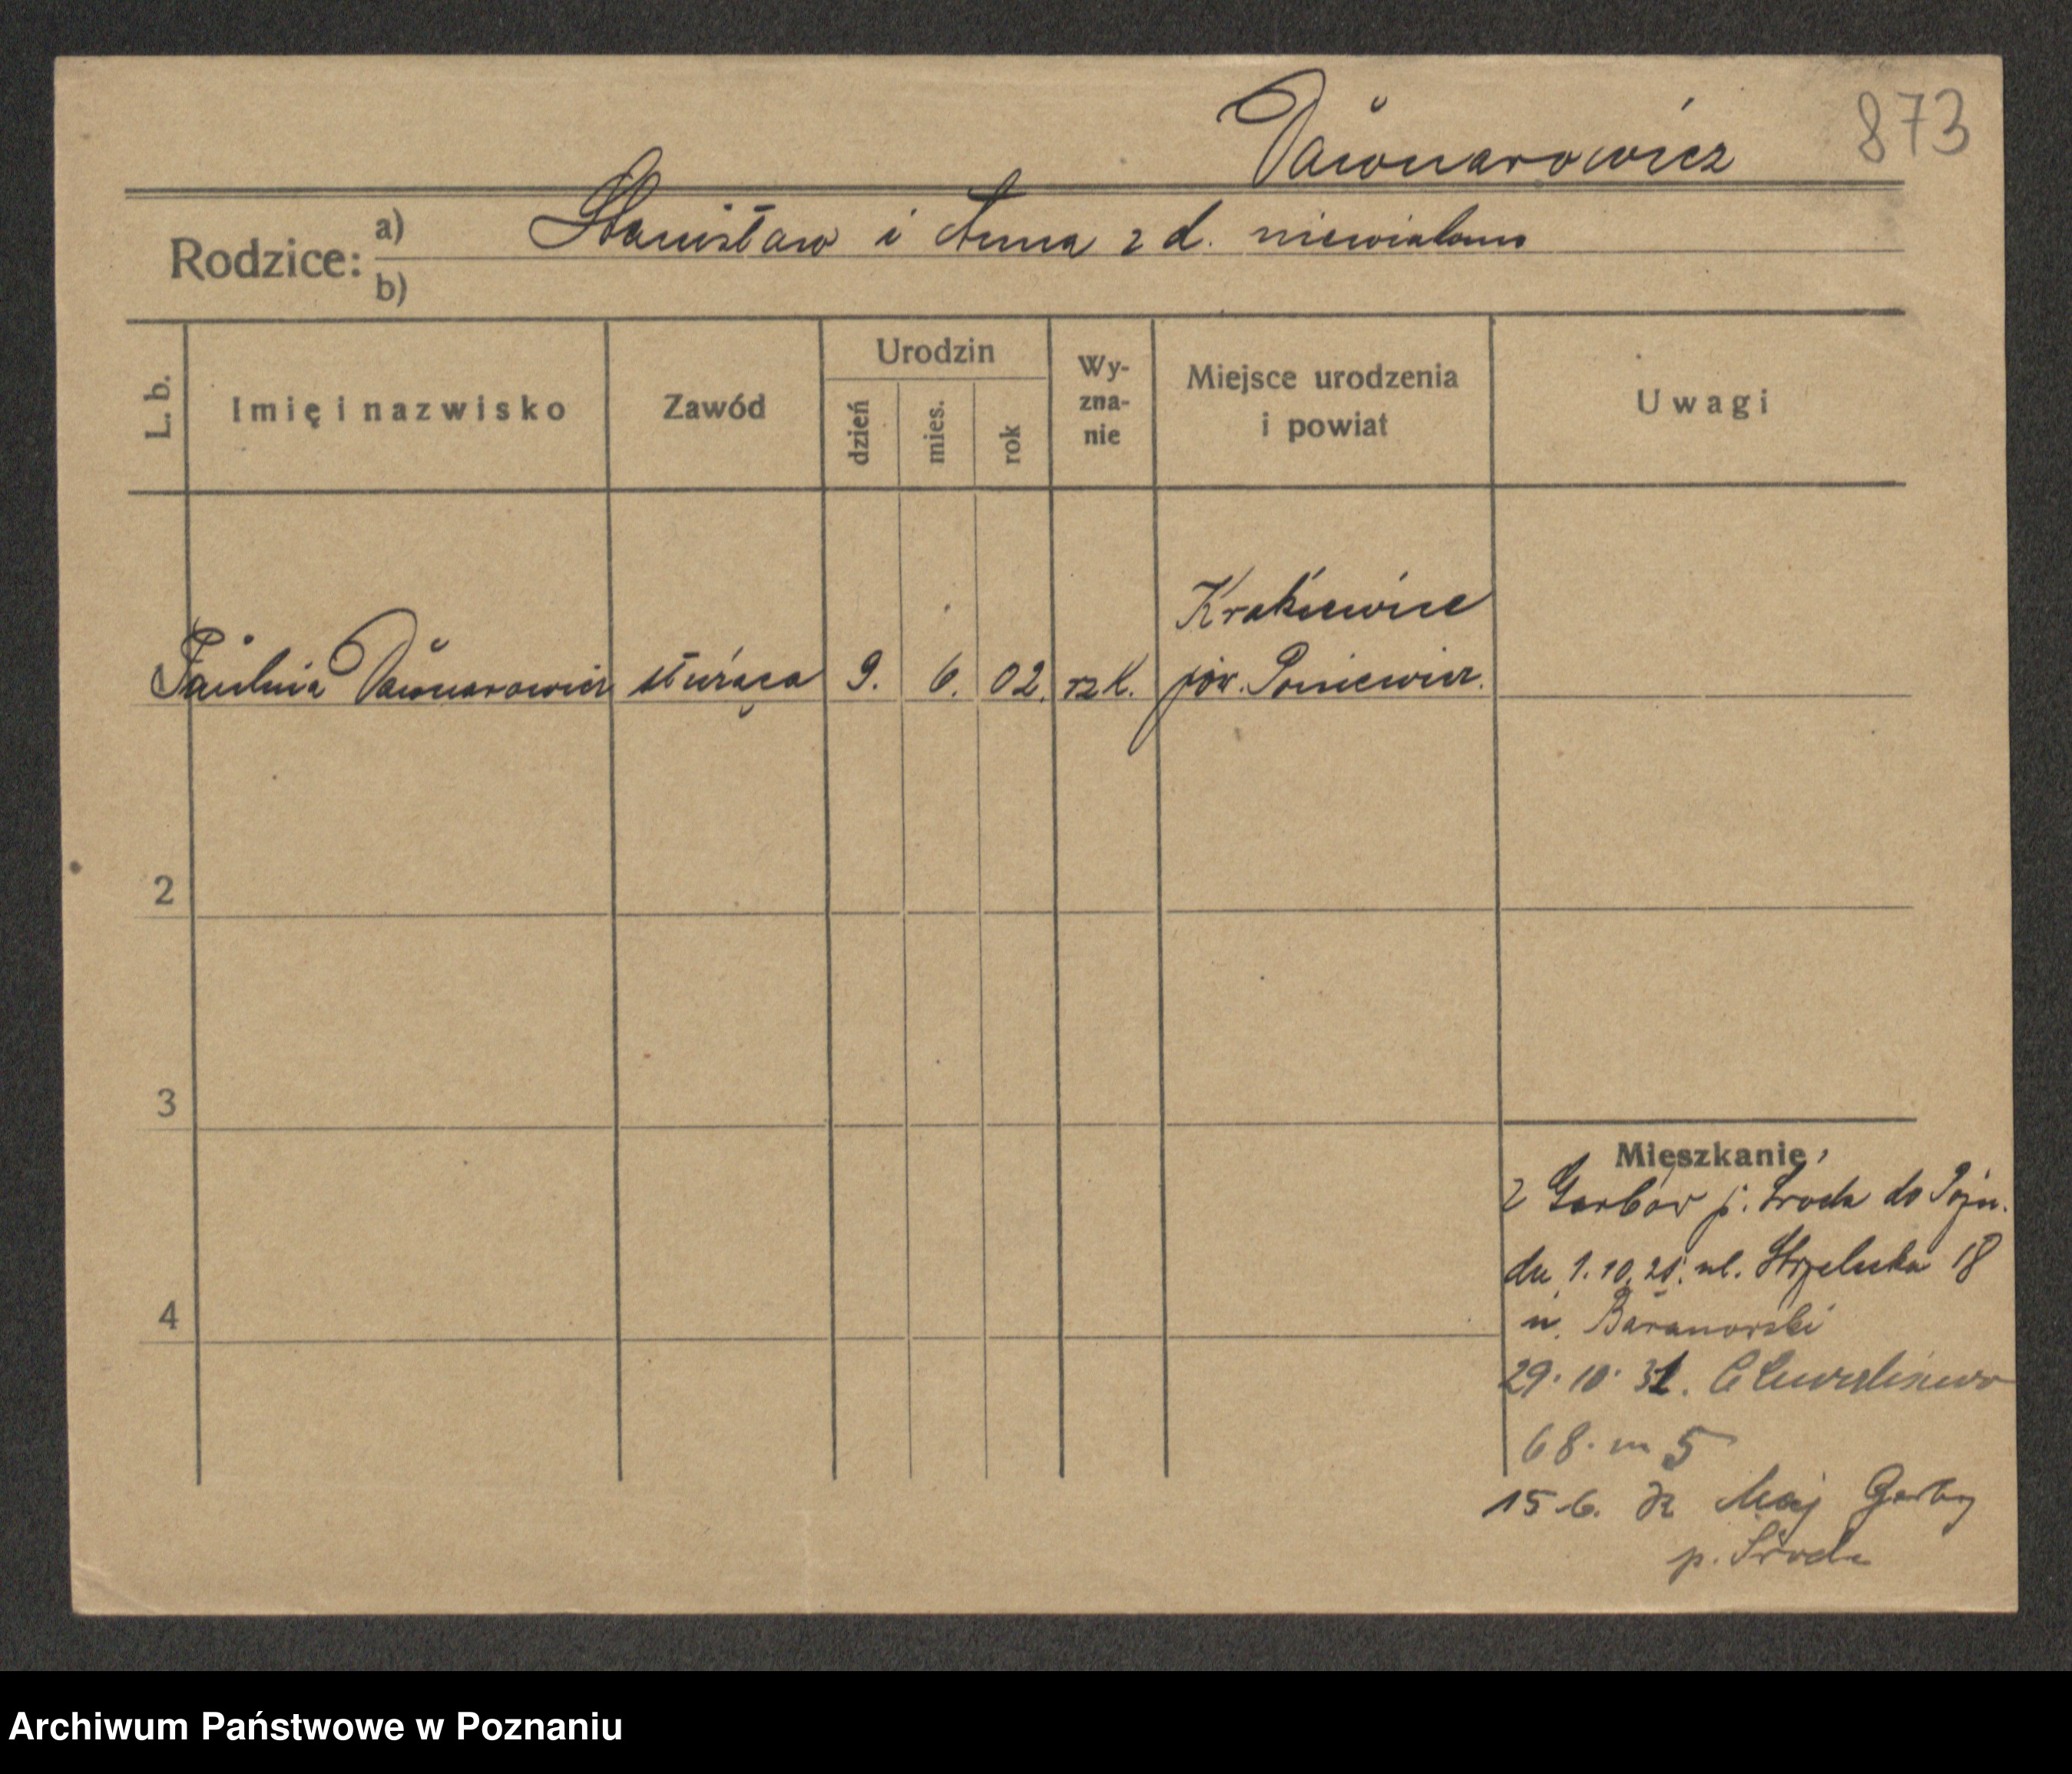 Daŭnarowicz
873
Rodzice: a) Stanisław i Anna z d. niewiadomo
b)
L. b.
Imię i nazwisko
Zawód
Urodzin
dzień
mies.
rok
Wy-
zna-
nie
Miejsce urodzenia
i powiat
Uwagi
Krakiewice
Paulina służąca 9. 6. 02. rzk. pow. Poniewież.
2
3
4
Mieszkanie
z Garbów p. Środa do Pozn.
dn. 1.10. ul. Strzelecka 18
u. Baranowski
29.10.31.
68. m 5
15.6. Garby
p. Środa
Archiwum Państwowe w Poznaniu